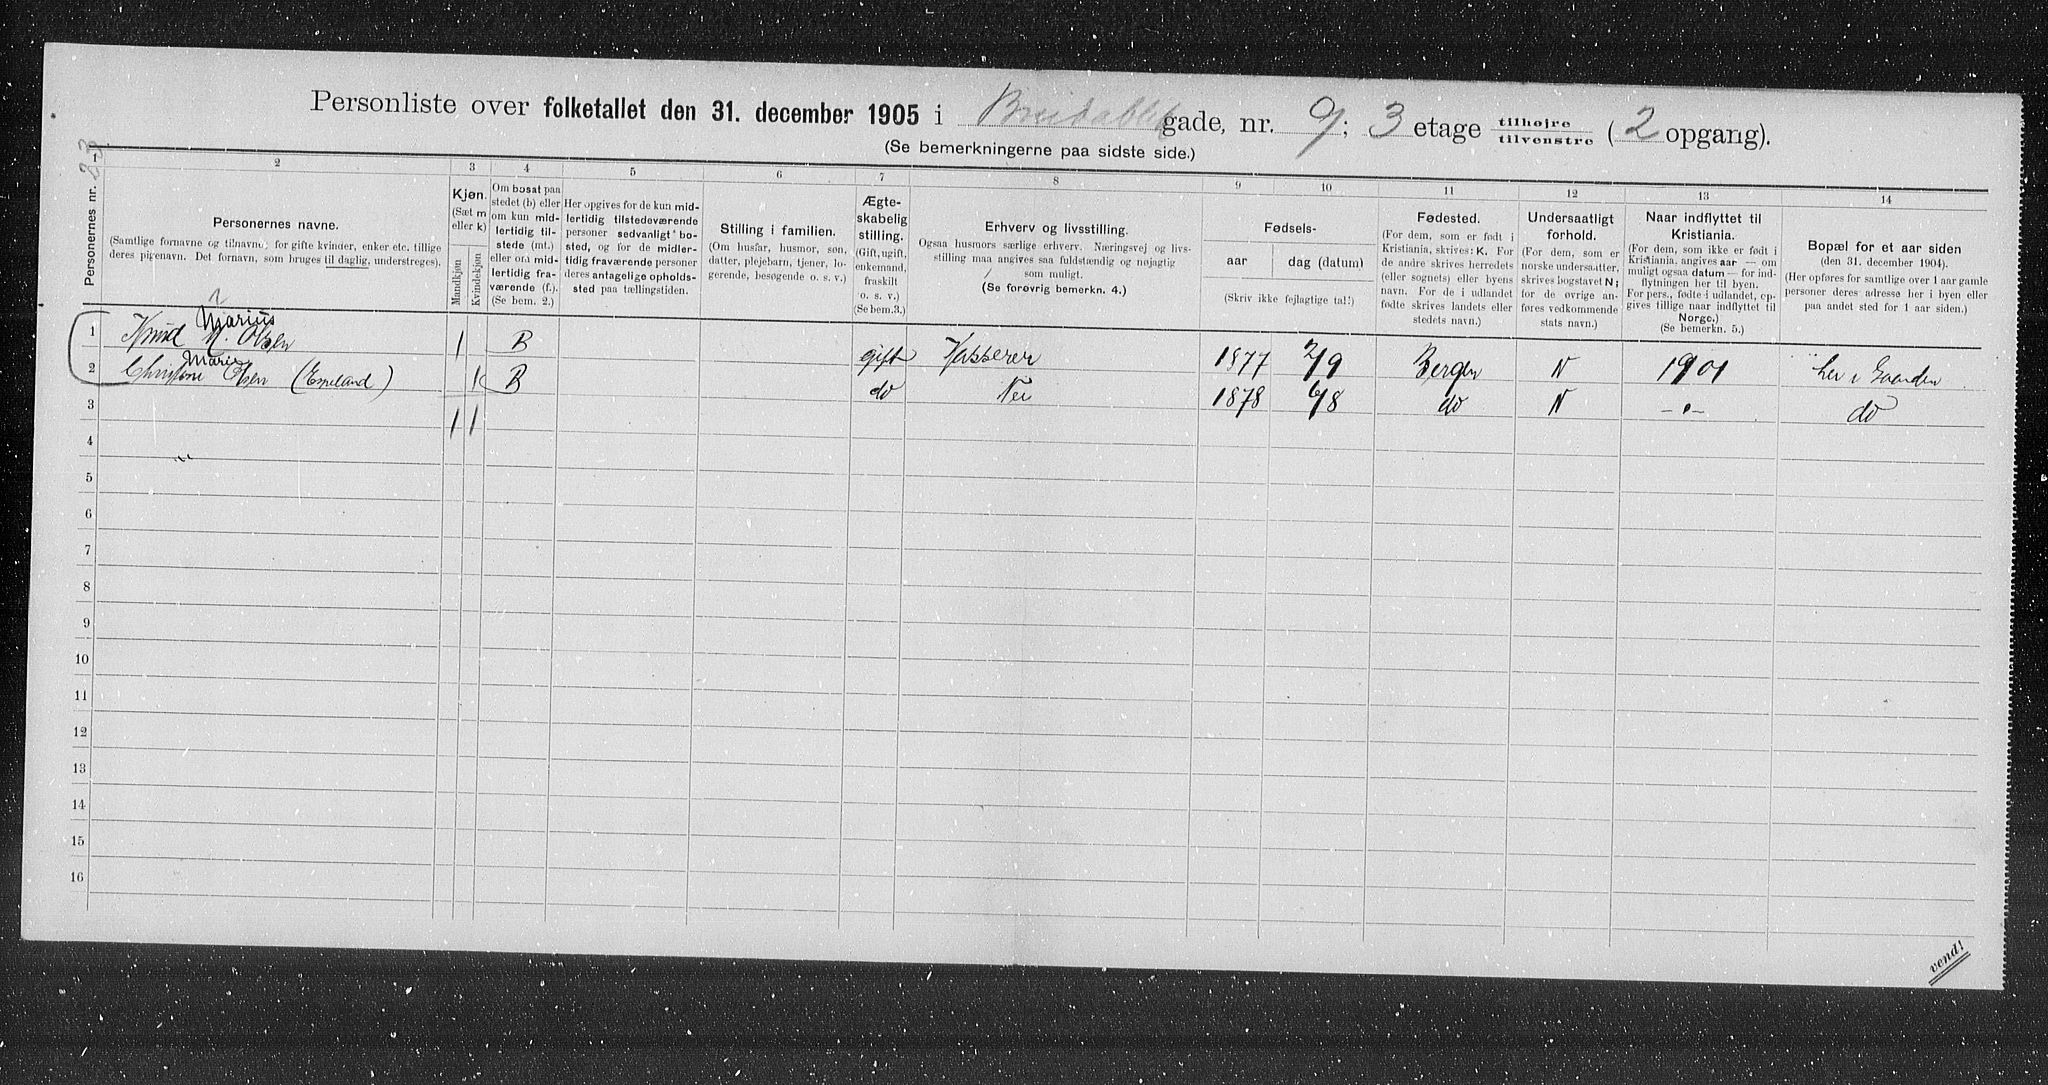 Personliste over folketallet den 31. december 1905 i Breidablik gade, nr. 9; 3 etage tilhøjre tilvenstre (2 opgang).
(Se bemerkningerne paa sidste side.)
23
1 2 3 4 5 6 7 8 9 10 11 12 13 14
Personernes nr.
Personernes navne.
(Samtlige fornavne og tilnavne; for gifte kvinder, enker etc. tillige
deres pigenavn. Det fornavn, som bruges til daglig, understreges).
Kjøn.
(Sæt m
eller k)
Mandkjøn
Kvindekjøn
Om bosat paa
stedet (b) eller
om kun mid-
lertidig til-
stede (mt.)
eller om mid-
lertidig fra-
værende (f.).
(Se bem. 2.)
Her opgives for de kun mid-
lertidig tilstedeværende
personer sedvanligt bo-
sted, og for de midler-
tidig fraværende personer
deres antagelige opholds-
sted paa tællingstiden.
Stilling i familien.
(Om husfar, husmor, søn,
datter, plejebarn, tjener, lo-
gerende, besøgende o. s. v.)
Ægte-
skabelig
stilling.
(Gift, ugift,
enkemand,
fraskilt
o. s. v.)
(Se bem.3.)
Erhverv og livsstilling.
Ogsaa husmors særlige erhverv. Næringsvej og livs-
stilling maa angives saa fuldstændig og nøjagtig
som muligt.
(Se forøvrig bemerkn. 4.)
Fødsels-
aar
dag (datum)
(Skriv ikke fejlagtige tal!)
Fødested.
(For dem, som er født i
Kristiania, skrives: K. For
de andre skrives herredets
(eller sognets) eller byens
navn. For de i udlandet
fødte skrives landets eller
stedets navn.)
Undersaatligt
forhold.
(For dem, som er
norske undersaatter,
skrives bogstavet N;
for de øvrige an-
føres vedkommende
stats navn.)
Naar indflyttet til
Kristiania.
(For dem, som ikke er født i
Kristiania, angives aar — om
muligt ogsaa datum — for ind-
flytningen her til byen.
For pers., fødte i udlandet, op-
gives tillige naar indflyttet til
Norge.)
(Se bemerkn. 5.)
Bopæl for et aar siden
(den 31. december 1904).
(Her opføres for samtlige over 1 aar gamle
personer deres adresse her i byen eller
paa andet sted for 1 aar siden.)
Marius
1 Knud M. Olsen 1 B gift Kasserer 1877 2/9 Bergen N 1901 her i Gaarden
Marie
2 Christine Olsen (Espeland) 1 B do Nei 1878 6/8 do N -"- do
3 1 1
4
5
6
7
8
9
10
11
12
13
14
15
16
vend!